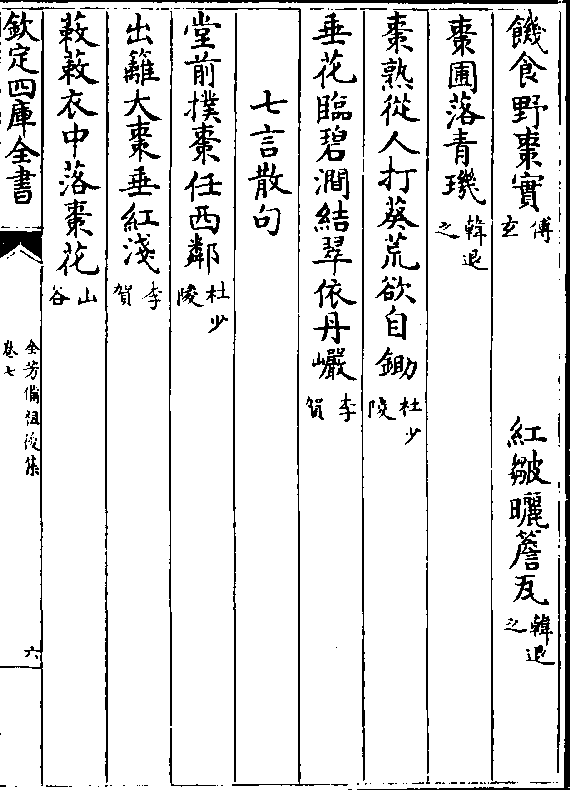 饑食野棗實傅玄　紅皺曬簷瓦韓退之
棗圃落青璣韓退之
棗熟從人打葵荒欲自鋤杜少陵
垂花臨碧澗結翠依丹巘李賀
七言散句
堂前撲棗任西鄰杜少陵
出籬大棗垂紅淺李賀
蔌蔌衣中落棗花山谷
欽定四庫全書
全芳備祖後集
卷七
六